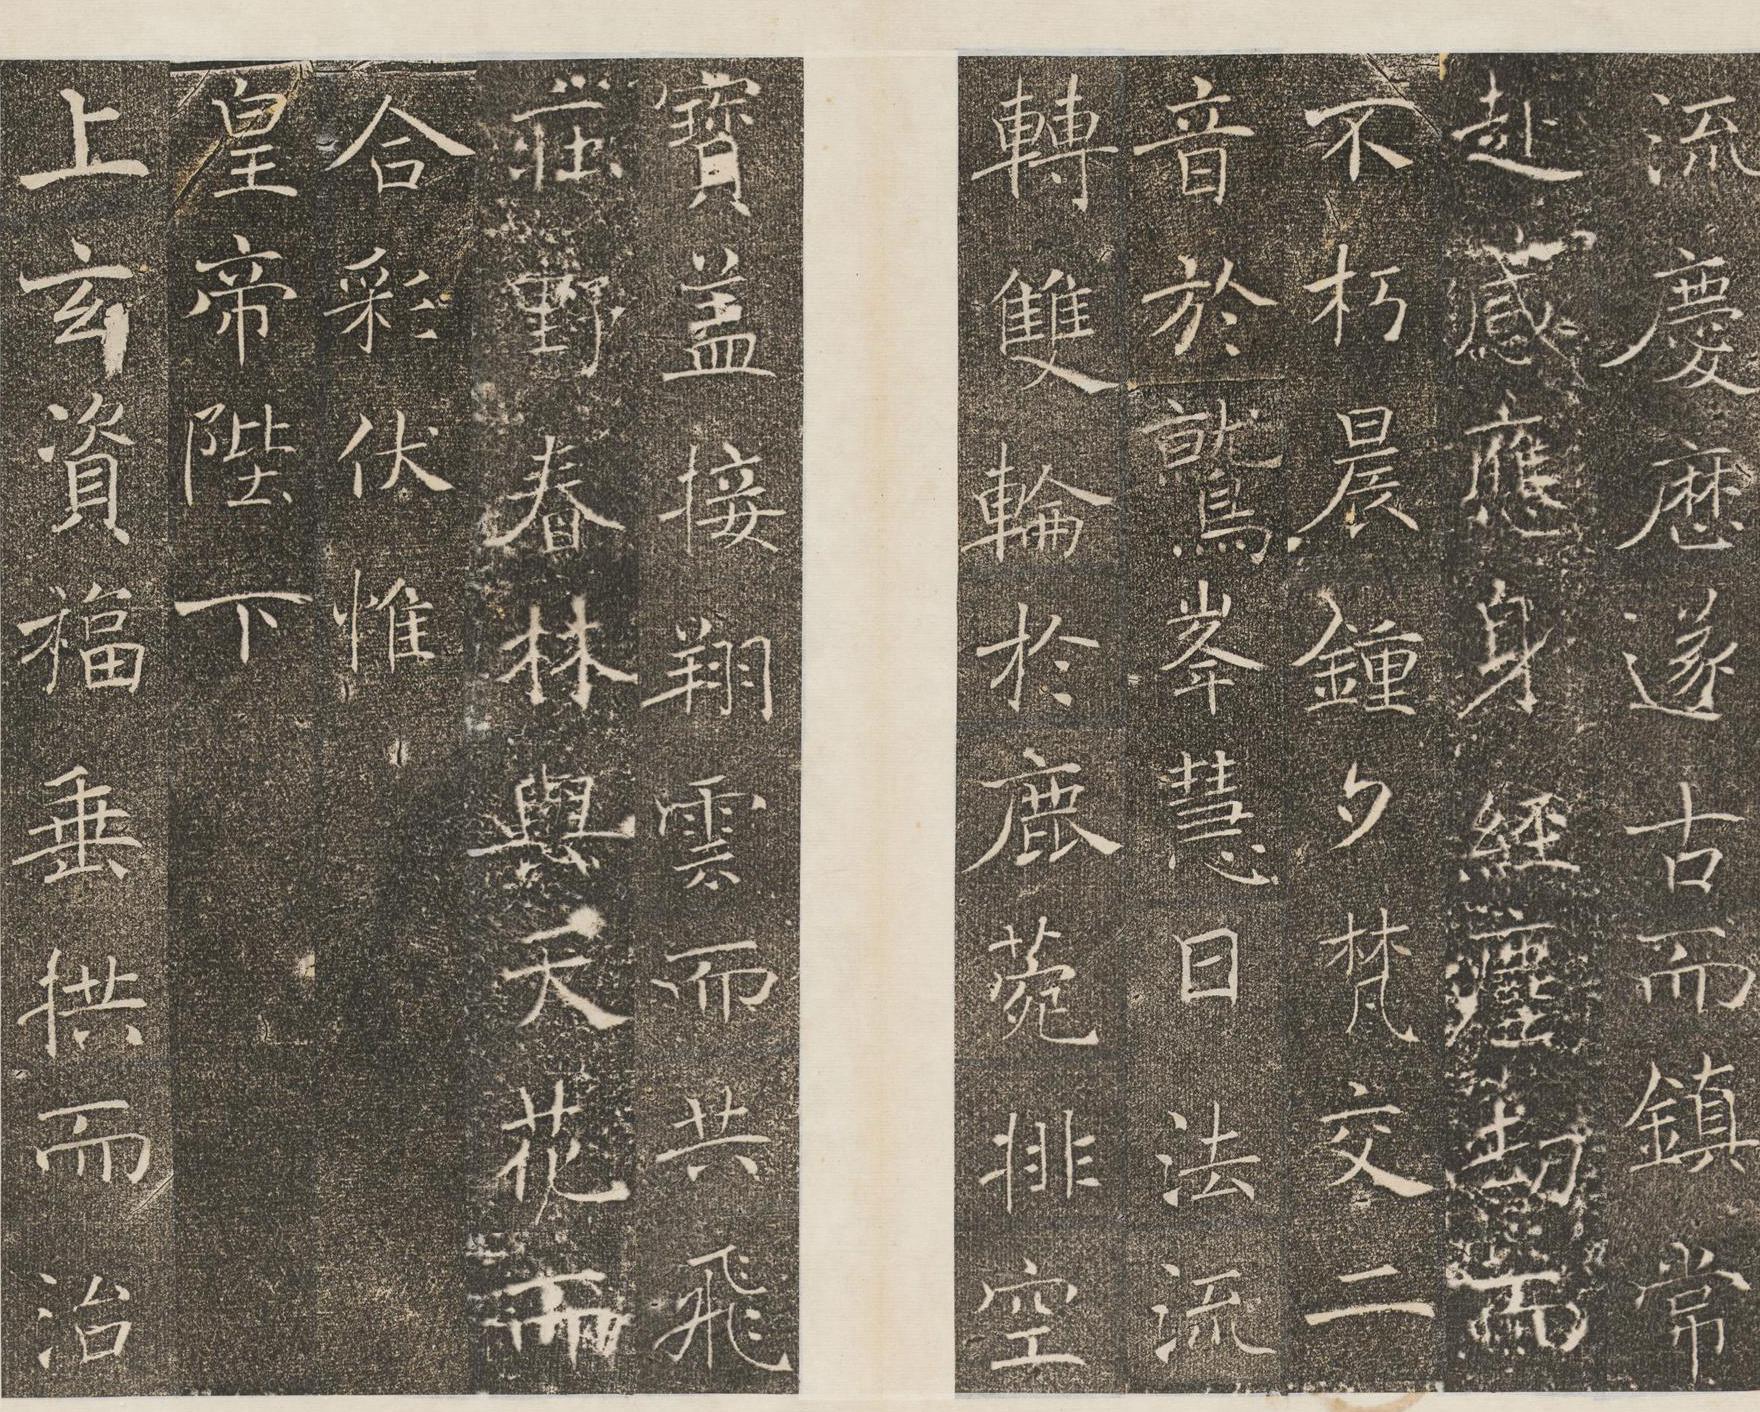 流慶歷遂古而鎮常
赴感應身經塵劫而
不朽晨鍾夕梵交二
音於鷲峯慧日法流
轉雙輪於鹿菀排空
寶蓋接翔雲而共飛
莊野春林與天花而
合彩伏惟
皇帝陛下
上玄資福垂拱而治